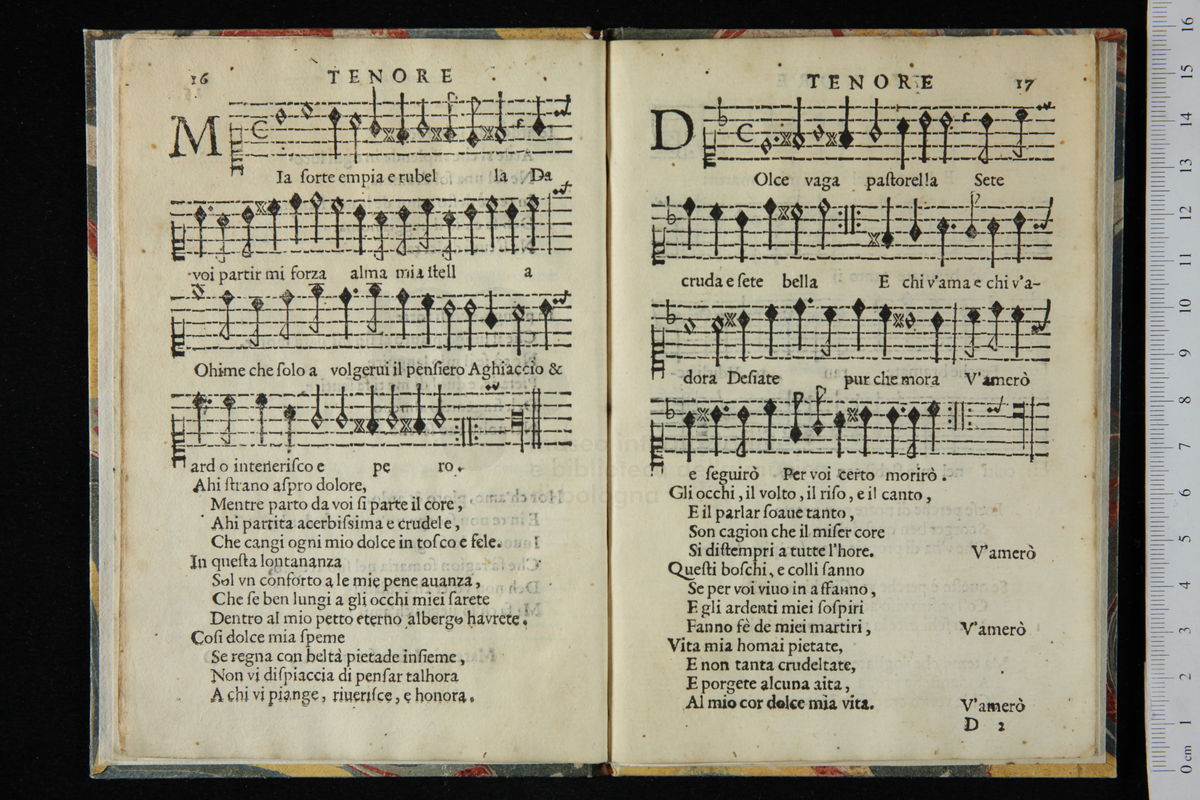 16 TENORE
M Ia sorte empia e rubel la Da
voi partir mi forza alma mia stell a
Ohime che solo a volgerui il pensiero Aghiaccio &
ard o intenerisco e pe ro.
Ahi strano aspro dolore,
Mentre parto da voi si parte il core,
Ahi partita acerbissima e crudele,
Che cangi ogni mio dolce in tosco e fele.
In questa lontananza
Sol vn conforto a le mie pene auanza,
Che se ben lungi a gli occhi miei sarete
Dentro al mio petto eterno albergo havrete.
Cosi dolce mia speme
Se regna con beltà pietade insieme,
Non vi dispiaccia di pensar talhora
A chi vi piange, riuerisce, e honora.
TENORE 17
D Olce vaga pastorella Sete
cruda e sete bella E chi v'ama e chi v'a-
dora Desiate pur che mora V'amerò
e seguirò Per voi certo morirò.
Gli occhi, il volto, il riso, e il canto,
E il parlar soaue tanto,
Son cagion che il miser core
Si distempri a tutte l'hore. V'amerò
Questi boschi, e colli sanno
Se per voi viuo in affanno,
E gli ardenti miei sospiri
Fanno fè de miei martiri, V'amerò
Vita mia homai pietate,
E non tanta crudeltate,
E porgete alcuna aita,
Al mio cor dolce mia vita. V'amerò
D 2
0 cm 1 2 3 4 5 6 7 8 9 10 11 12 13 14 15 16